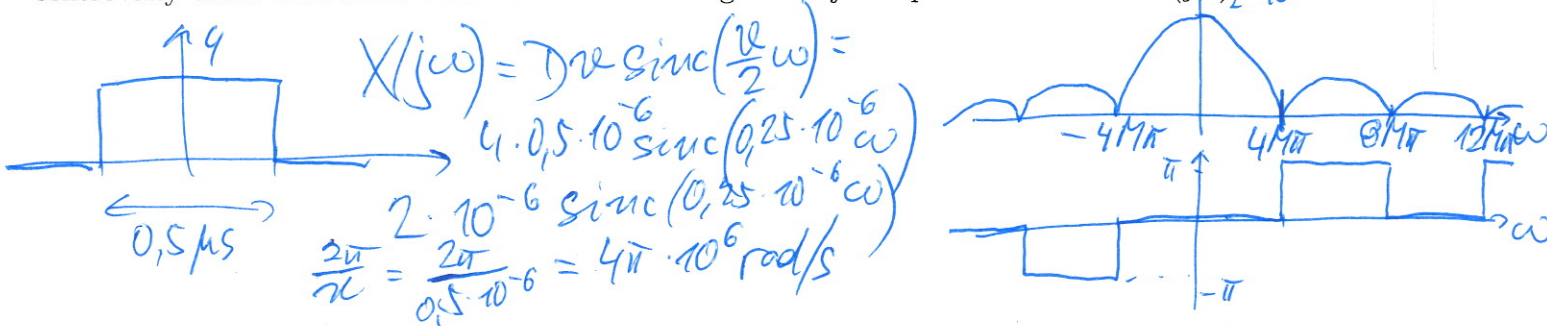 4
0,5 μs
X(jω) = Dϑ sinc(ϑ/2 ω) =
4·0,5·10^-6 sinc(0,25·10^-6 ω)
2·10^-6 sinc(0,25·10^-6 ω)
2π/ϑ = 2π/0,5·10^-6 = 4π·10^6 rad/s
-4Mπ 4Mπ 8Mπ 12Mπ ω
π
ω
-π